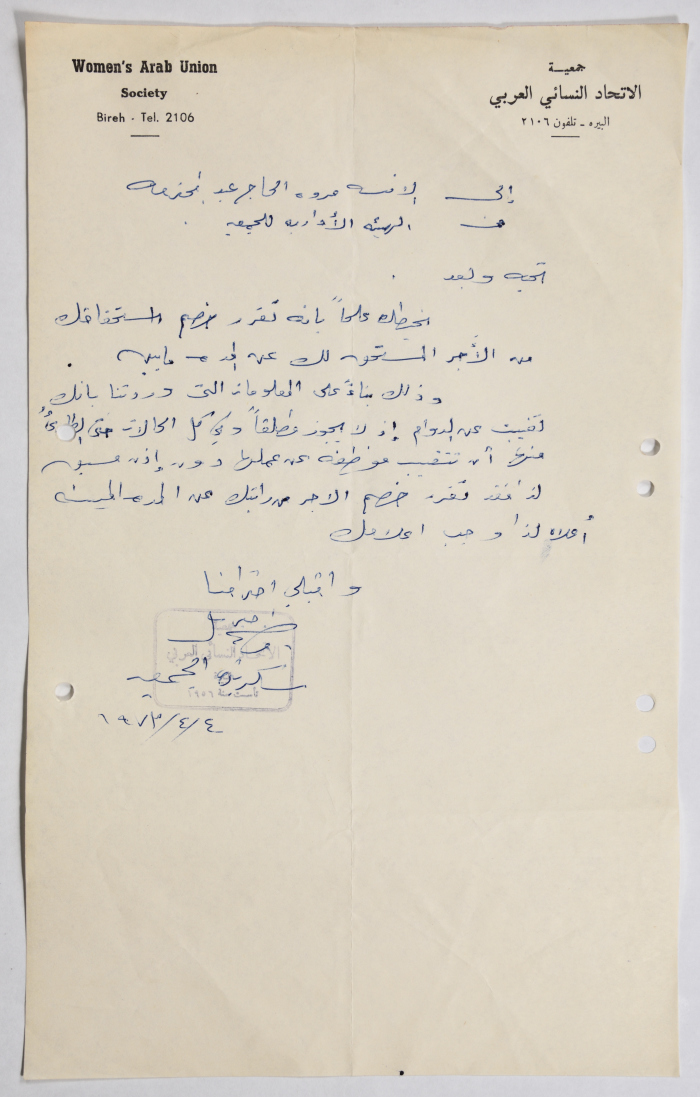 Women's Arab Union
Society
Bireh - Tel. 2106
جمعيـــة
الاتحاد النسائي العربي
البيره ـ تلفون ٢١٠٦
إلى الانسه مروه الحاج عبد المحترمه
من الهيئه الأداريه للجمعيه .
تحيه وبعد .
نحيطك علماً بانه تقرر خصم استحقاقك
من الأجر المستحق لك عن المده
وذلك بناءً على المعلومات التي وردتنا بانك
تغيبت عن الدوام إذ لا يجوز مطلقاً وفي كل الحالات حتى الطارئه
منها أن تتغيب موظفه عن عملها دون إذن مسبق
لذا فقد تقرر خصم الاجر من راتبك عن المده المبينه
أعلاه لذا وجب اعلامك
واقبلي احترامنا
الاتحاد النسائي العربي
سكرتيرة الجمعيه
تأسست سنة ١٩٥٦
١٩٧٣/٤/٤